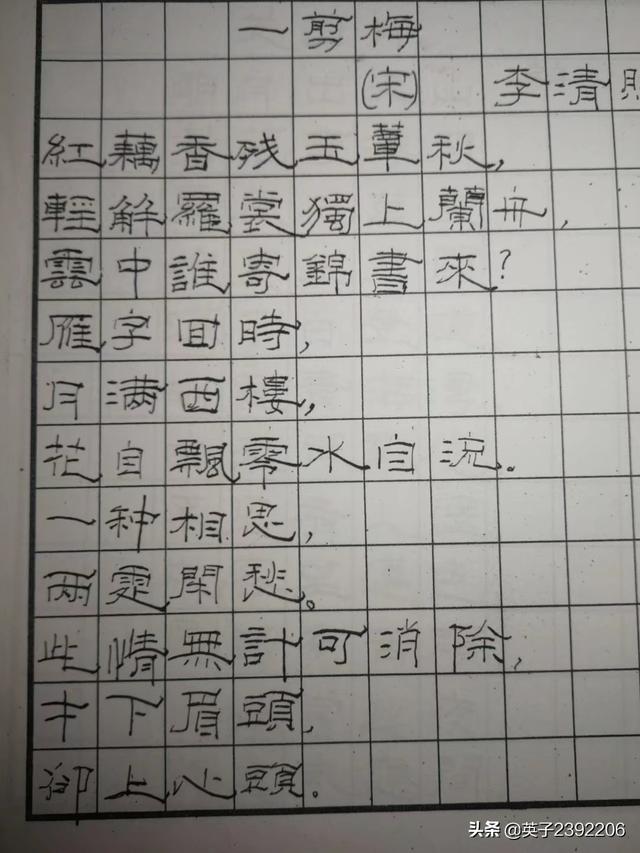 一剪梅
(宋) 李清照
紅藕香残玉簟秋,
輕解羅裳獨上蘭舟,
雲中誰寄錦書來?
雁字囬時,
月满西樓,
花自飄零水自流.
一种相思,
兩處閑愁。
此情無計可消除,
才下眉頭,
卻上心頭.
头条 @英子2392206